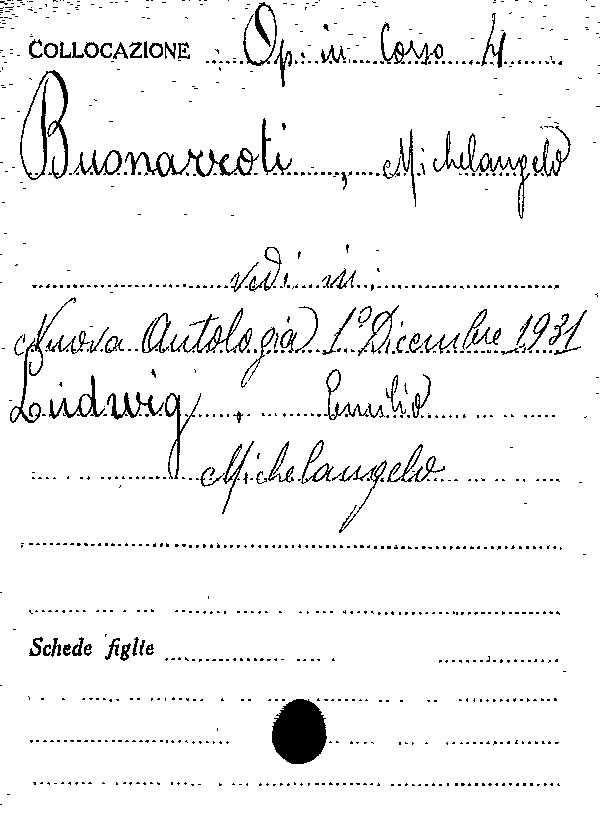 COLLOCAZIONE Op. in Corso 4
Buonarroti, Michelangelo
vedi in:
Nuova Antologia 1° Dicembre 1931
Ludwig, Emilio
Michelangelo
Schede figlie